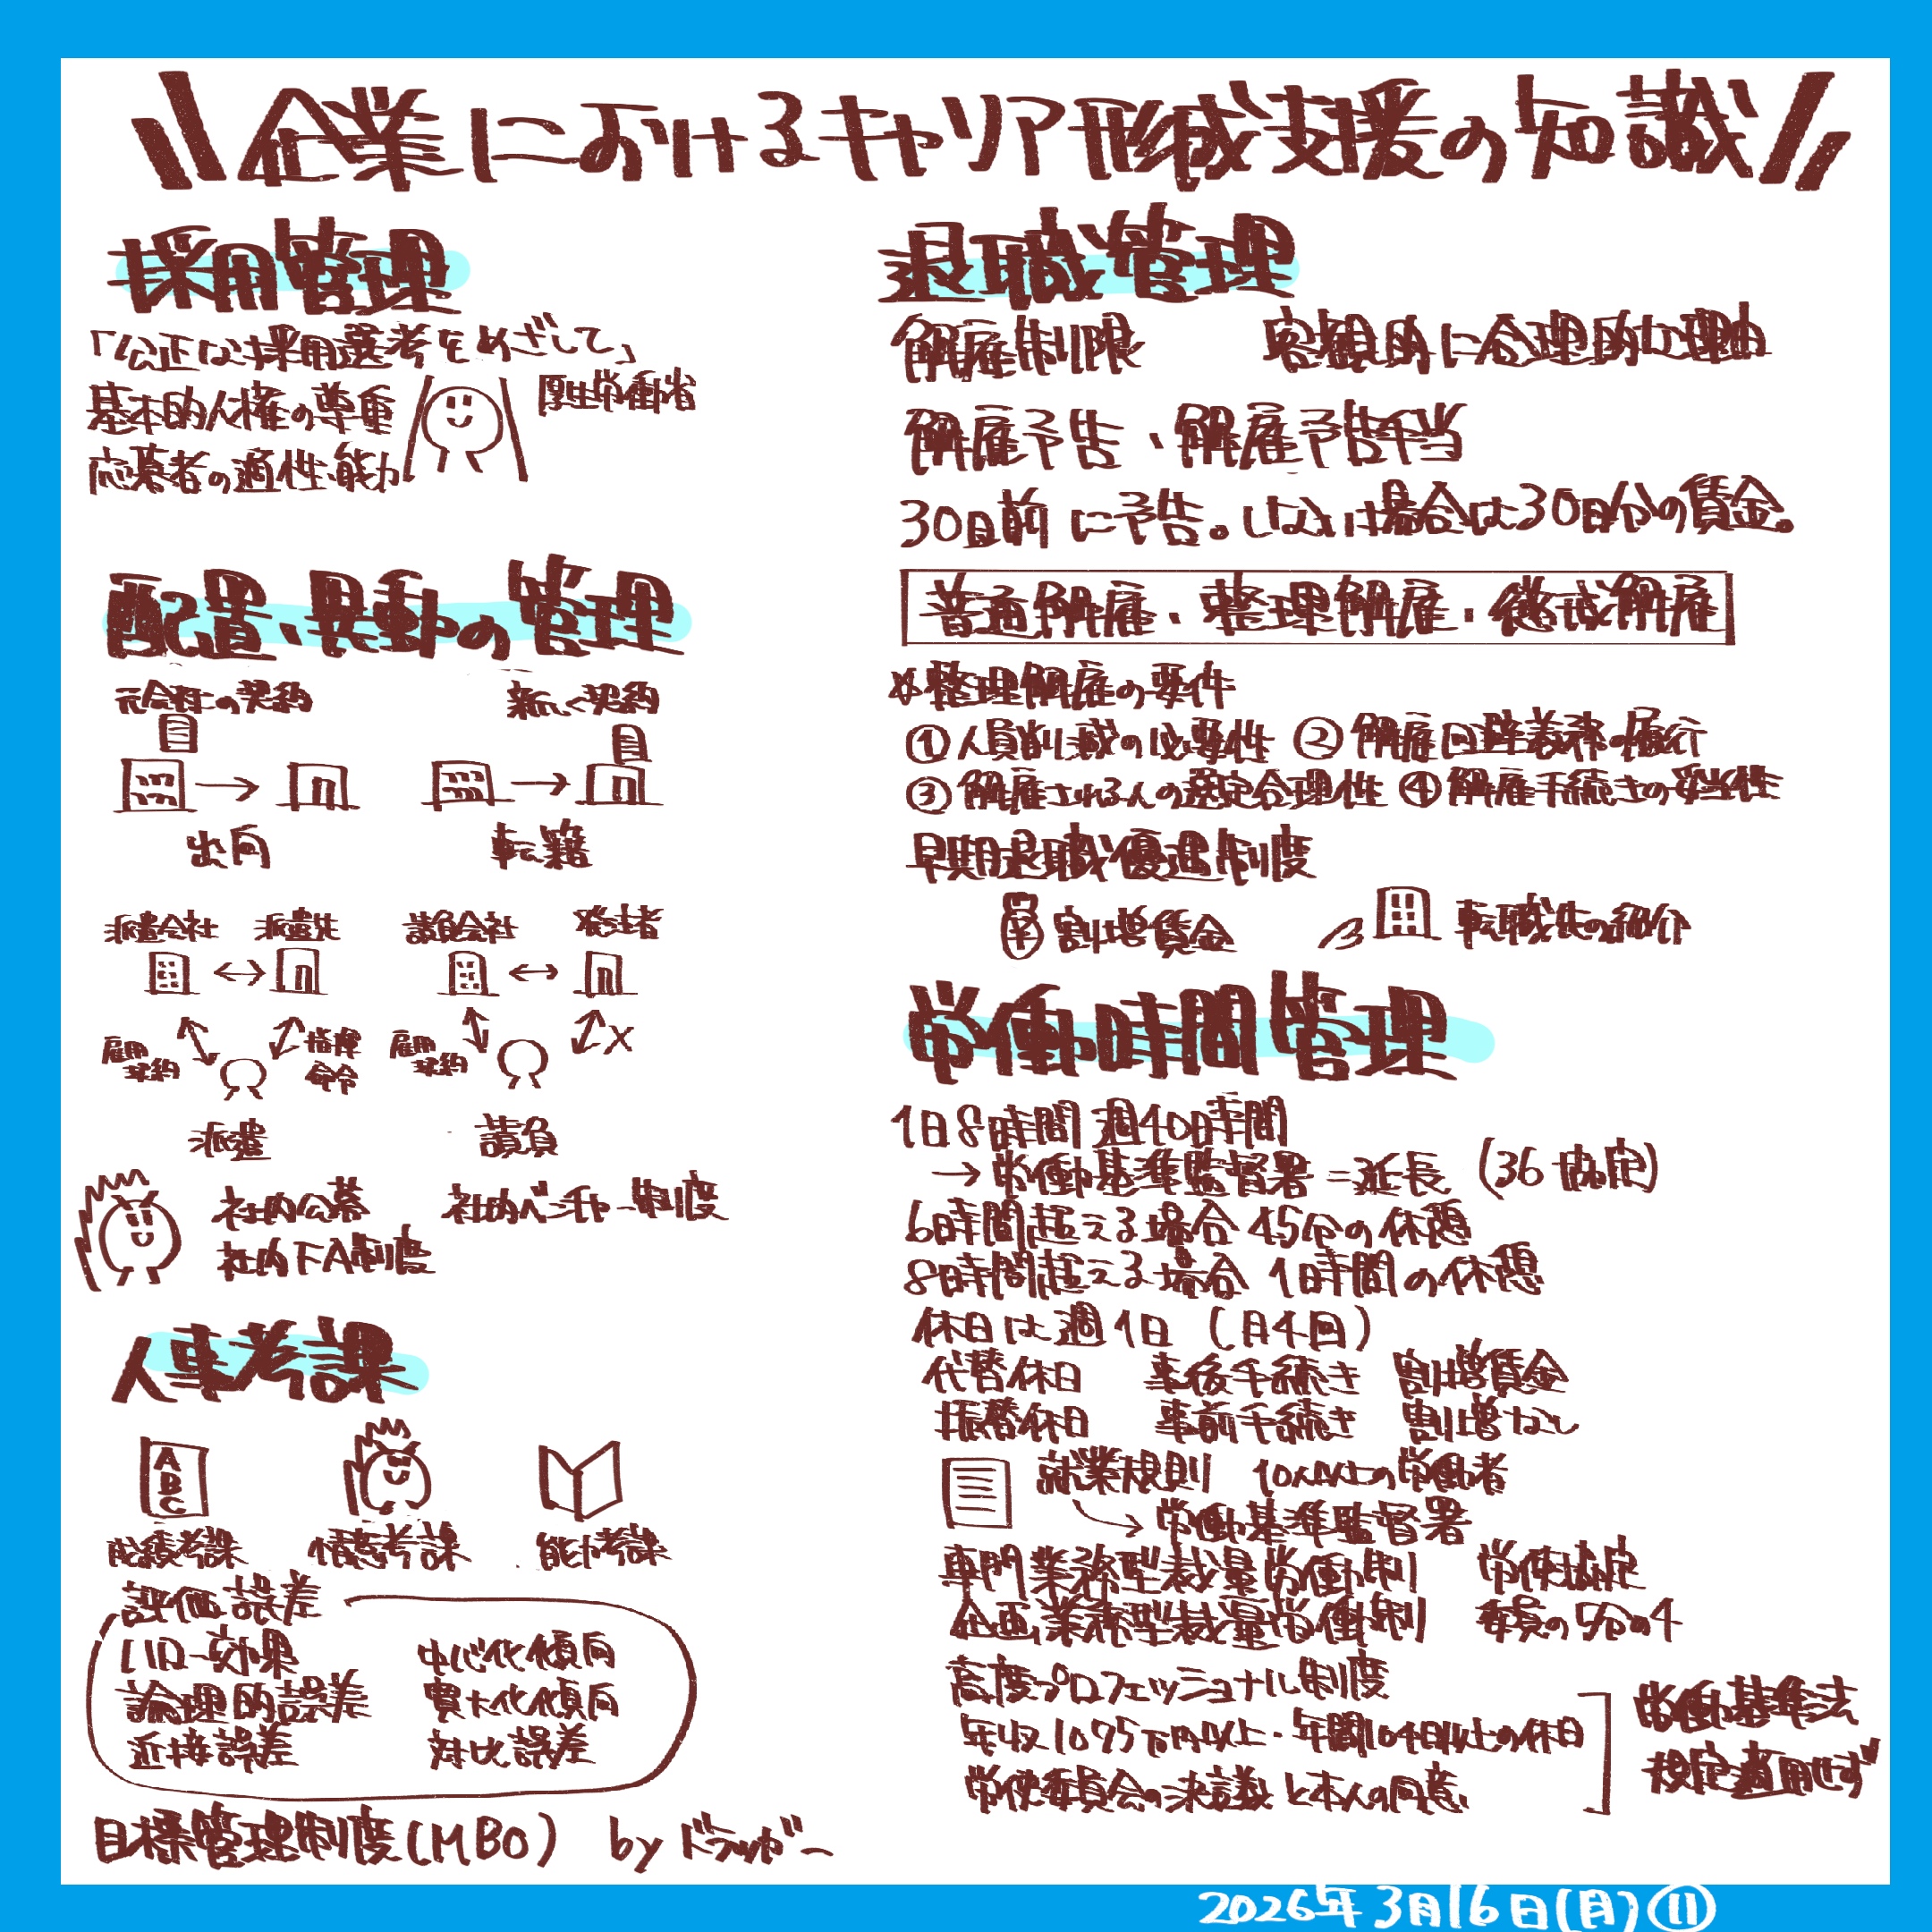 企業におけるキャリア形成支援の知識
採用管理
「公正な採用選考をめざして」
厚生労働省
基本的人権の尊重
応募者の適性・能力
配置、異動の管理
元会社の契約 新しく契約
出向 転籍
派遣会社 派遣先 請負会社 発注者
雇用契約 指揮命令 雇用契約 ×
派遣 請負
社内公募 社内ベンチャー制度
社内FA制度
人事考課
ABC
成績考課 情意考課 能力考課
評価誤差
ハロー効果 中心化傾向
論理的誤差 寛大化傾向
近接誤差 対比誤差
目標管理制度(MBO) by ドラッガー
退職管理
解雇制限 客観的に合理的な理由
解雇予告、解雇予告手当
30日前に予告。しない場合は30日分の賃金。
普通解雇・整理解雇・懲戒解雇
整理解雇の要件
①人員削減の必要性 ②解雇回避義務の履行
③解雇される人の選定合理性 ④解雇手続きの妥当性
早期退職優遇制度
割増賃金 転職先の紹介
労働時間管理
1日8時間 週40時間
→労働基準監督署=延長 (36協定)
6時間超える場合 45分の休憩
8時間超える場合 1時間の休憩
休日は週1日 (月4回)
代替休日 事後手続き 割増賃金
振替休日 事前手続き 割増なし
就業規則 10人以上の労働者
→労働基準監督署
専門業務型裁量労働制 労使協定
企画業務型裁量労働制 委員の5分の4
高度プロフェッショナル制度
年収1075万円以上・年間104日以上の休日
労使委員会の決議と本人の同意
労働基準法
規定適用せず
2026年3月16日(月)⑪